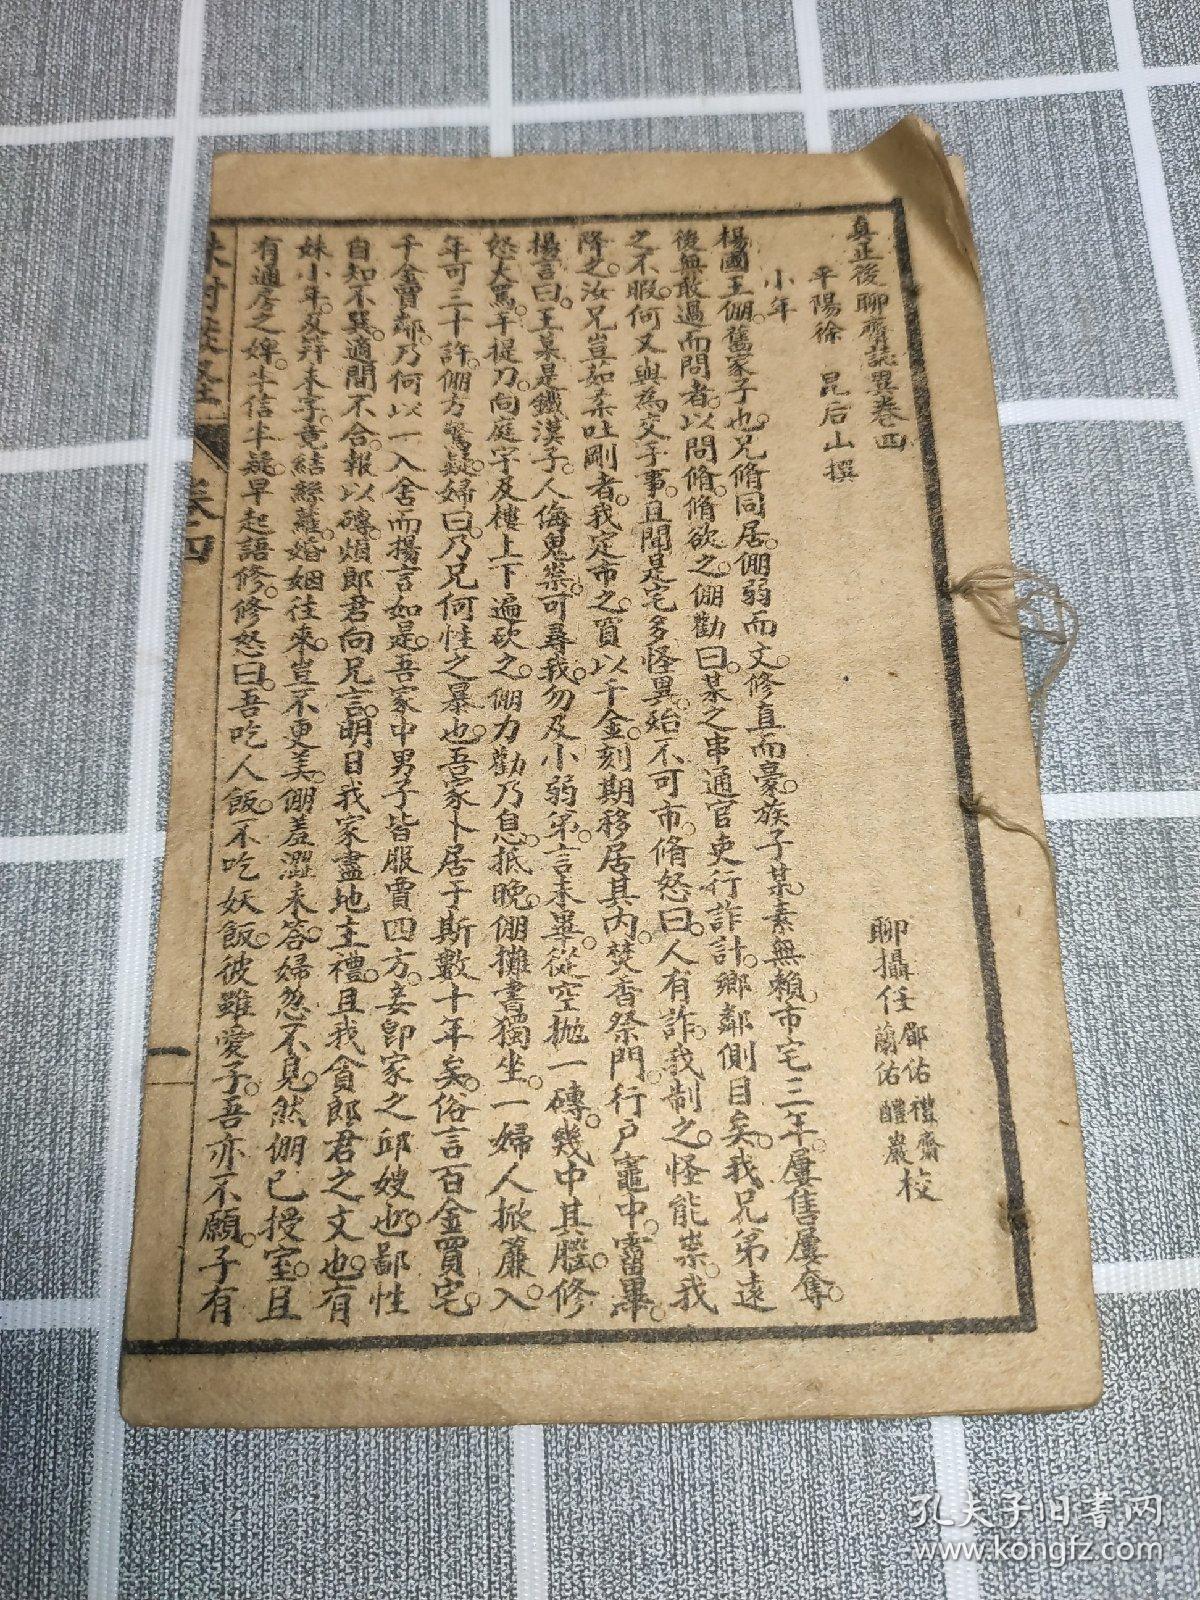 真正後聊齋誌異卷四
平陽徐 昆后山撰
聊攝任
鄧佑 禮齋
蘭佑 醴巖
校
小年
楊國王倗舊家子也兄脩同居倗弱而文修直而豪族子某素無賴市宅三年屢售屢奪
後無敢過而問者以問脩脩欲之倗勸曰某之串通官吏行詐計鄉鄰側目矣我兄弟遠
之不暇何又與為交手事且聞是宅多怪異殆不可市脩怒曰人有詐我制之怪能祟我
降之汝兄豈茹柔吐剛者我定市之買以千金刻期移居其内焚香祭門行戶竈中霤畢
揚言曰王某是鐵漢子人侮鬼祟可尋我勿及小弱弟言未畢從空抛一磚幾中其腦修
怒大罵手提刀向庭宇及樓上下遍砍之倗力勸乃息抵晚倗攤書獨坐一婦人掀簾入
年可三十許倗方驚疑婦曰乃兄何性之暴也吾家卜居于斯數十年矣俗言百金買宅
千金買鄰乃何以一入舍而揚言如是吾家中男子皆服賈四方妾卽家之邱嫂也鄙性
自知不巽適聞不合報以磚煩郎君向兄言明日我家盡地主禮且我貪郎君之文也有
妹小年及笄未字竟結絲蘿婚姻往來豈不更美倗羞澀未答婦忽不見然倗已授室且
有通房之婢半信半疑早起語修修怒曰吾吃人飯不吃妖飯彼雖愛子吾亦不願子有
卷四
一
孔夫子旧书网
www.kongfz.com